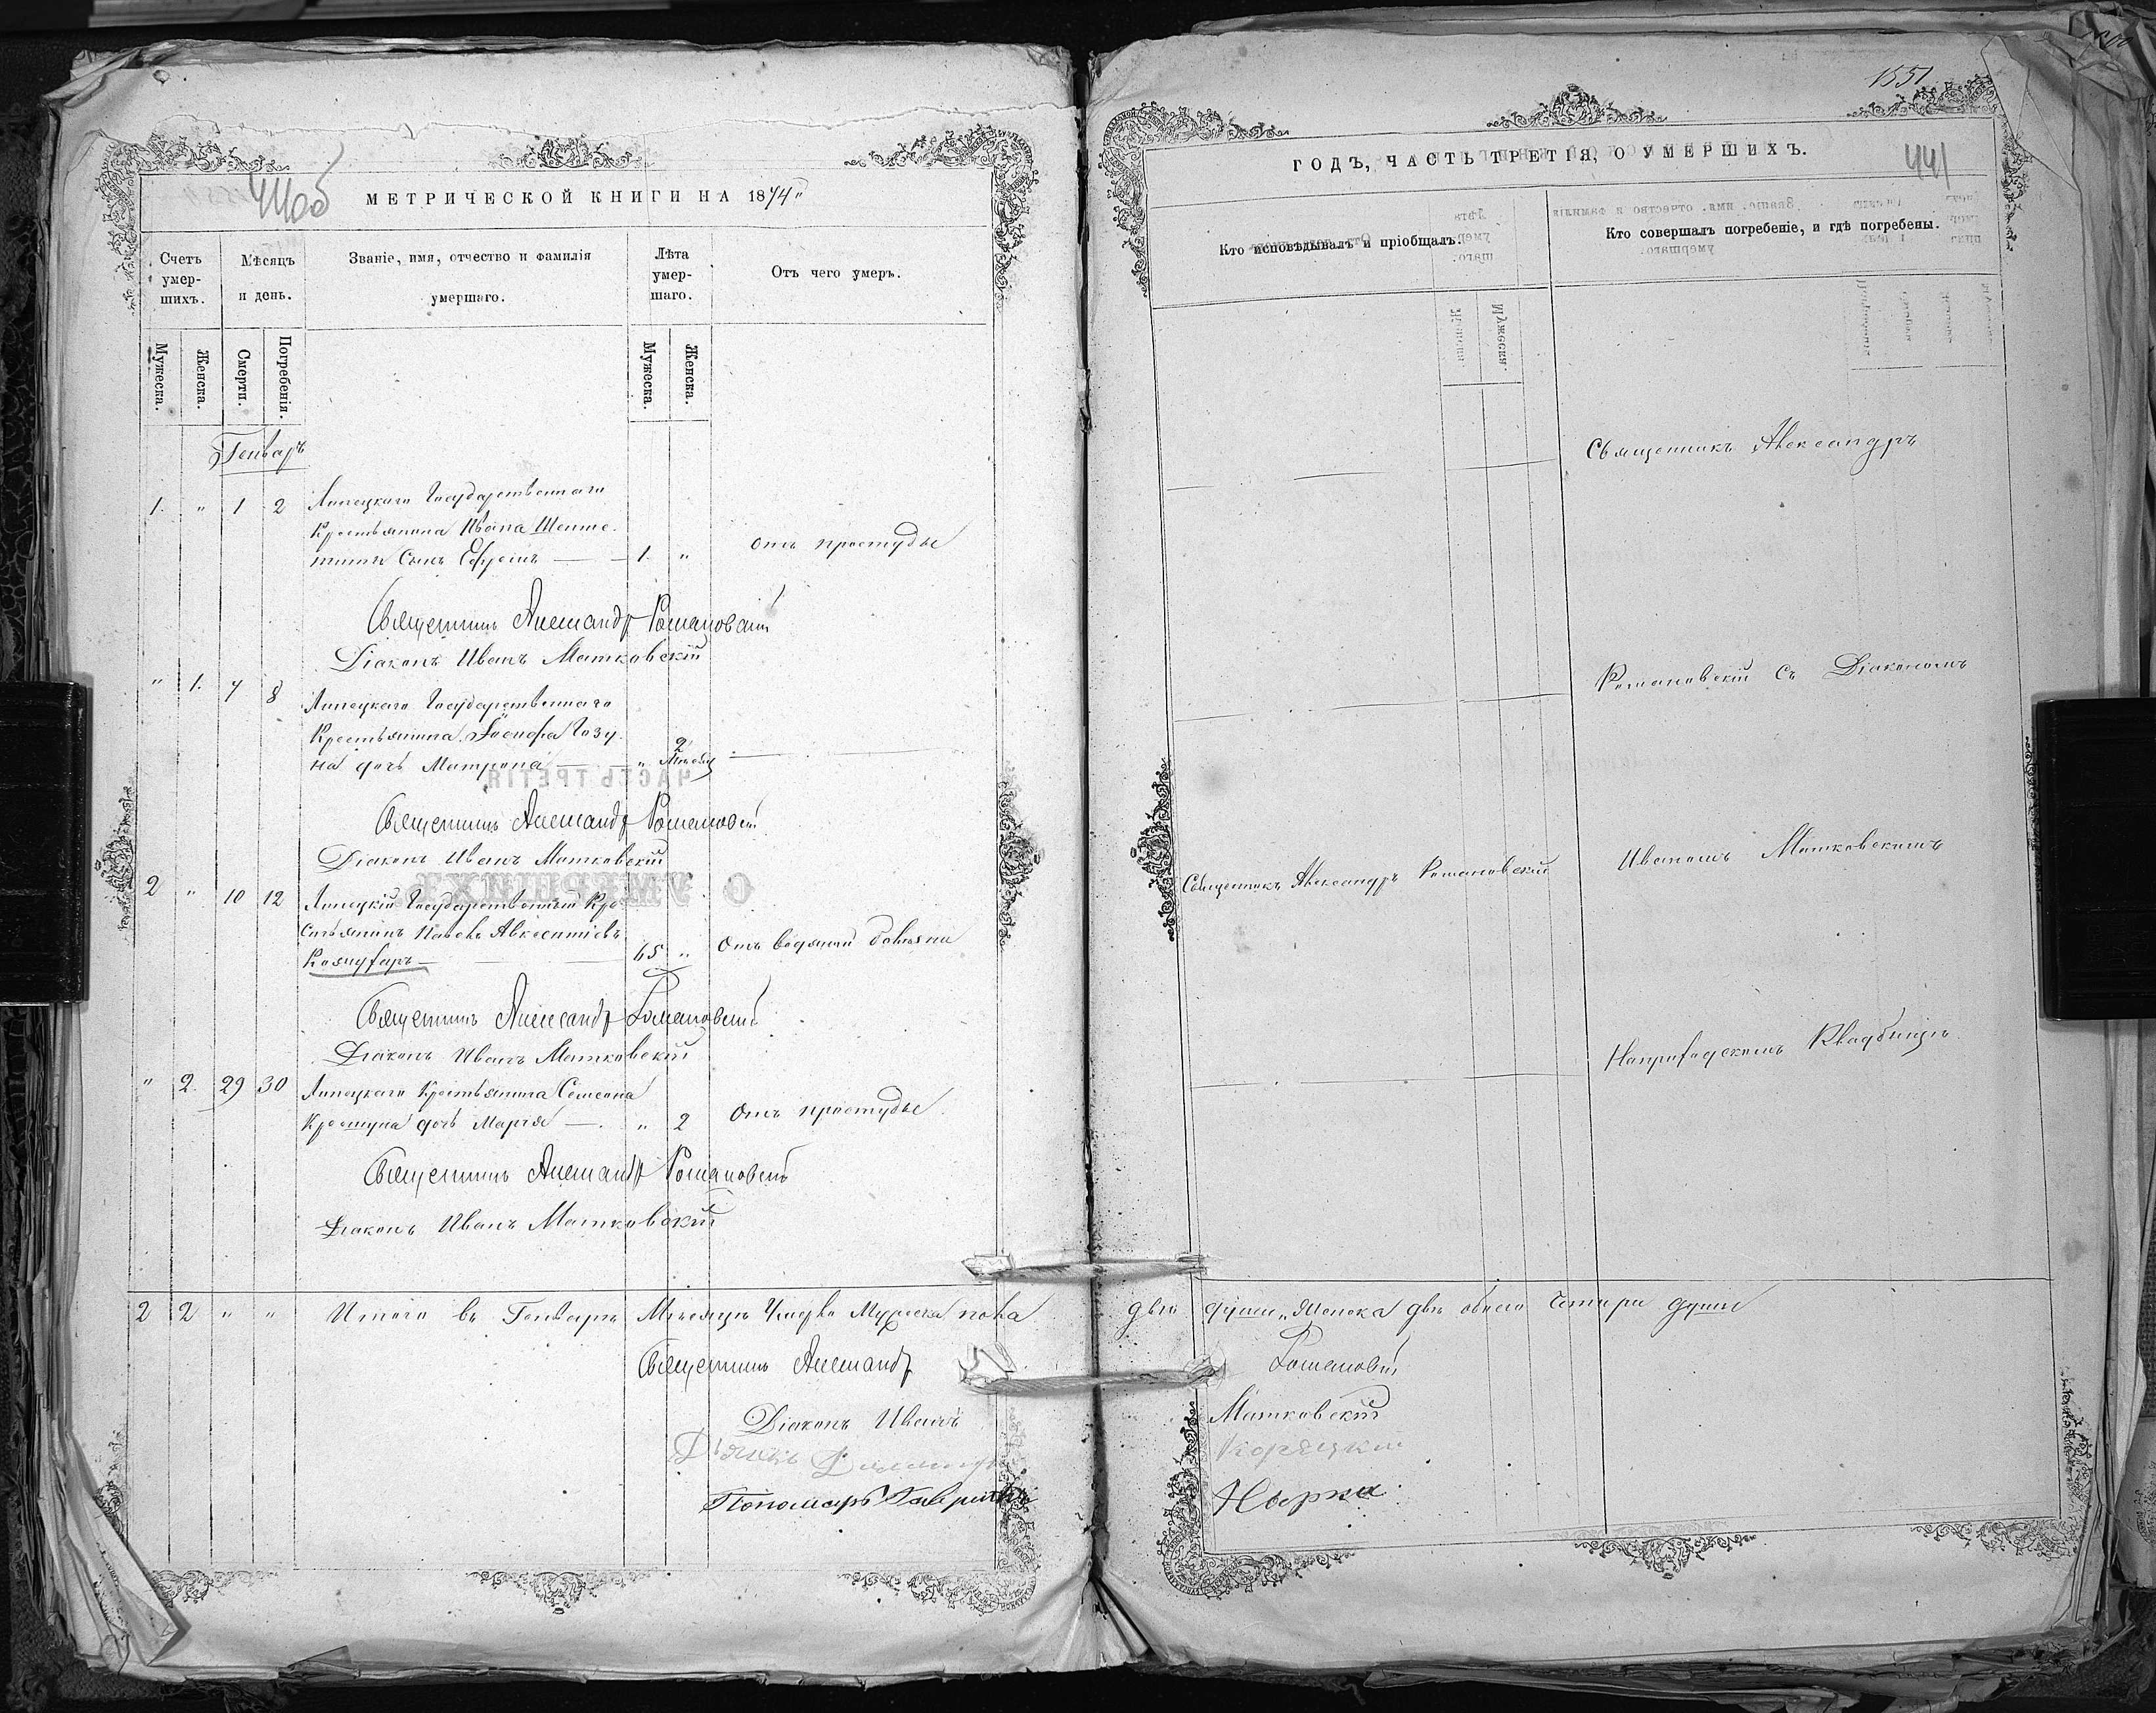 440об
МЕТРИЧЕСКОЙ КНИГИ НА 1874
Счетъ умер-шихъ.
Мѣсяцъ и день.
Званіе, имя, отчество и фамилія умершаго.
Лѣта умер-шаго.
Отъ чего умеръ.
Мужеска.
Женска.
Смерти.
Погребенія.
Мужеска.
Женска.
Генваръ
1. " 1 2 Липецкаго Государственнаго
Крестьянина Ивана
Сынъ Ефремъ — 1. " Отъ простуды
Священникъ Александръ Романовскій
Діаконъ Иванъ Матковскій
" 1. 7 8 Липецкаго Государственнаго
Крестьянина Іосифа Гозу
на дочь Матрона — " 2 Мѣсяц —
Священникъ Александръ Романовскій
Діаконъ Иванъ Матковскій
2 " 10 12 Липецкій Государственный Кре
стьянинъ Павелъ Авксентіевъ
65 " Отъ водяной болезни
Священникъ Александръ Романовскій
Діаконъ Иванъ Матковскій
" 2. 29 30 Липецкаго Крестьянина Семеона
дочь Марія — " 2 Отъ простуды
Священникъ Александръ Романовскій
Діаконъ Иванъ Матковскій
2 2 " " Итого въ Генварѣ Мѣсяцѣ Умерло Мужеска пола
Священникъ Александръ
Діаконъ Иванъ
Пономарь Гаврiилъ
1551
441
ГОДЪ, ЧАСТЬ ТРЕТІЯ, О УМЕРШИХЪ.
Кто исповѣдывалъ и пріобщалъ.
Кто совершалъ погребеніе, и гдѣ погребены.
Священникъ Александръ
Романовскій съ Діакономъ
Священникъ Александръ Романовскій
Иваномъ Матковскимъ
На приходскомъ Кладбищѣ
двѣ души, Женска двѣ обоего Четыри души
Романовскій
Матковскій
Корецкій